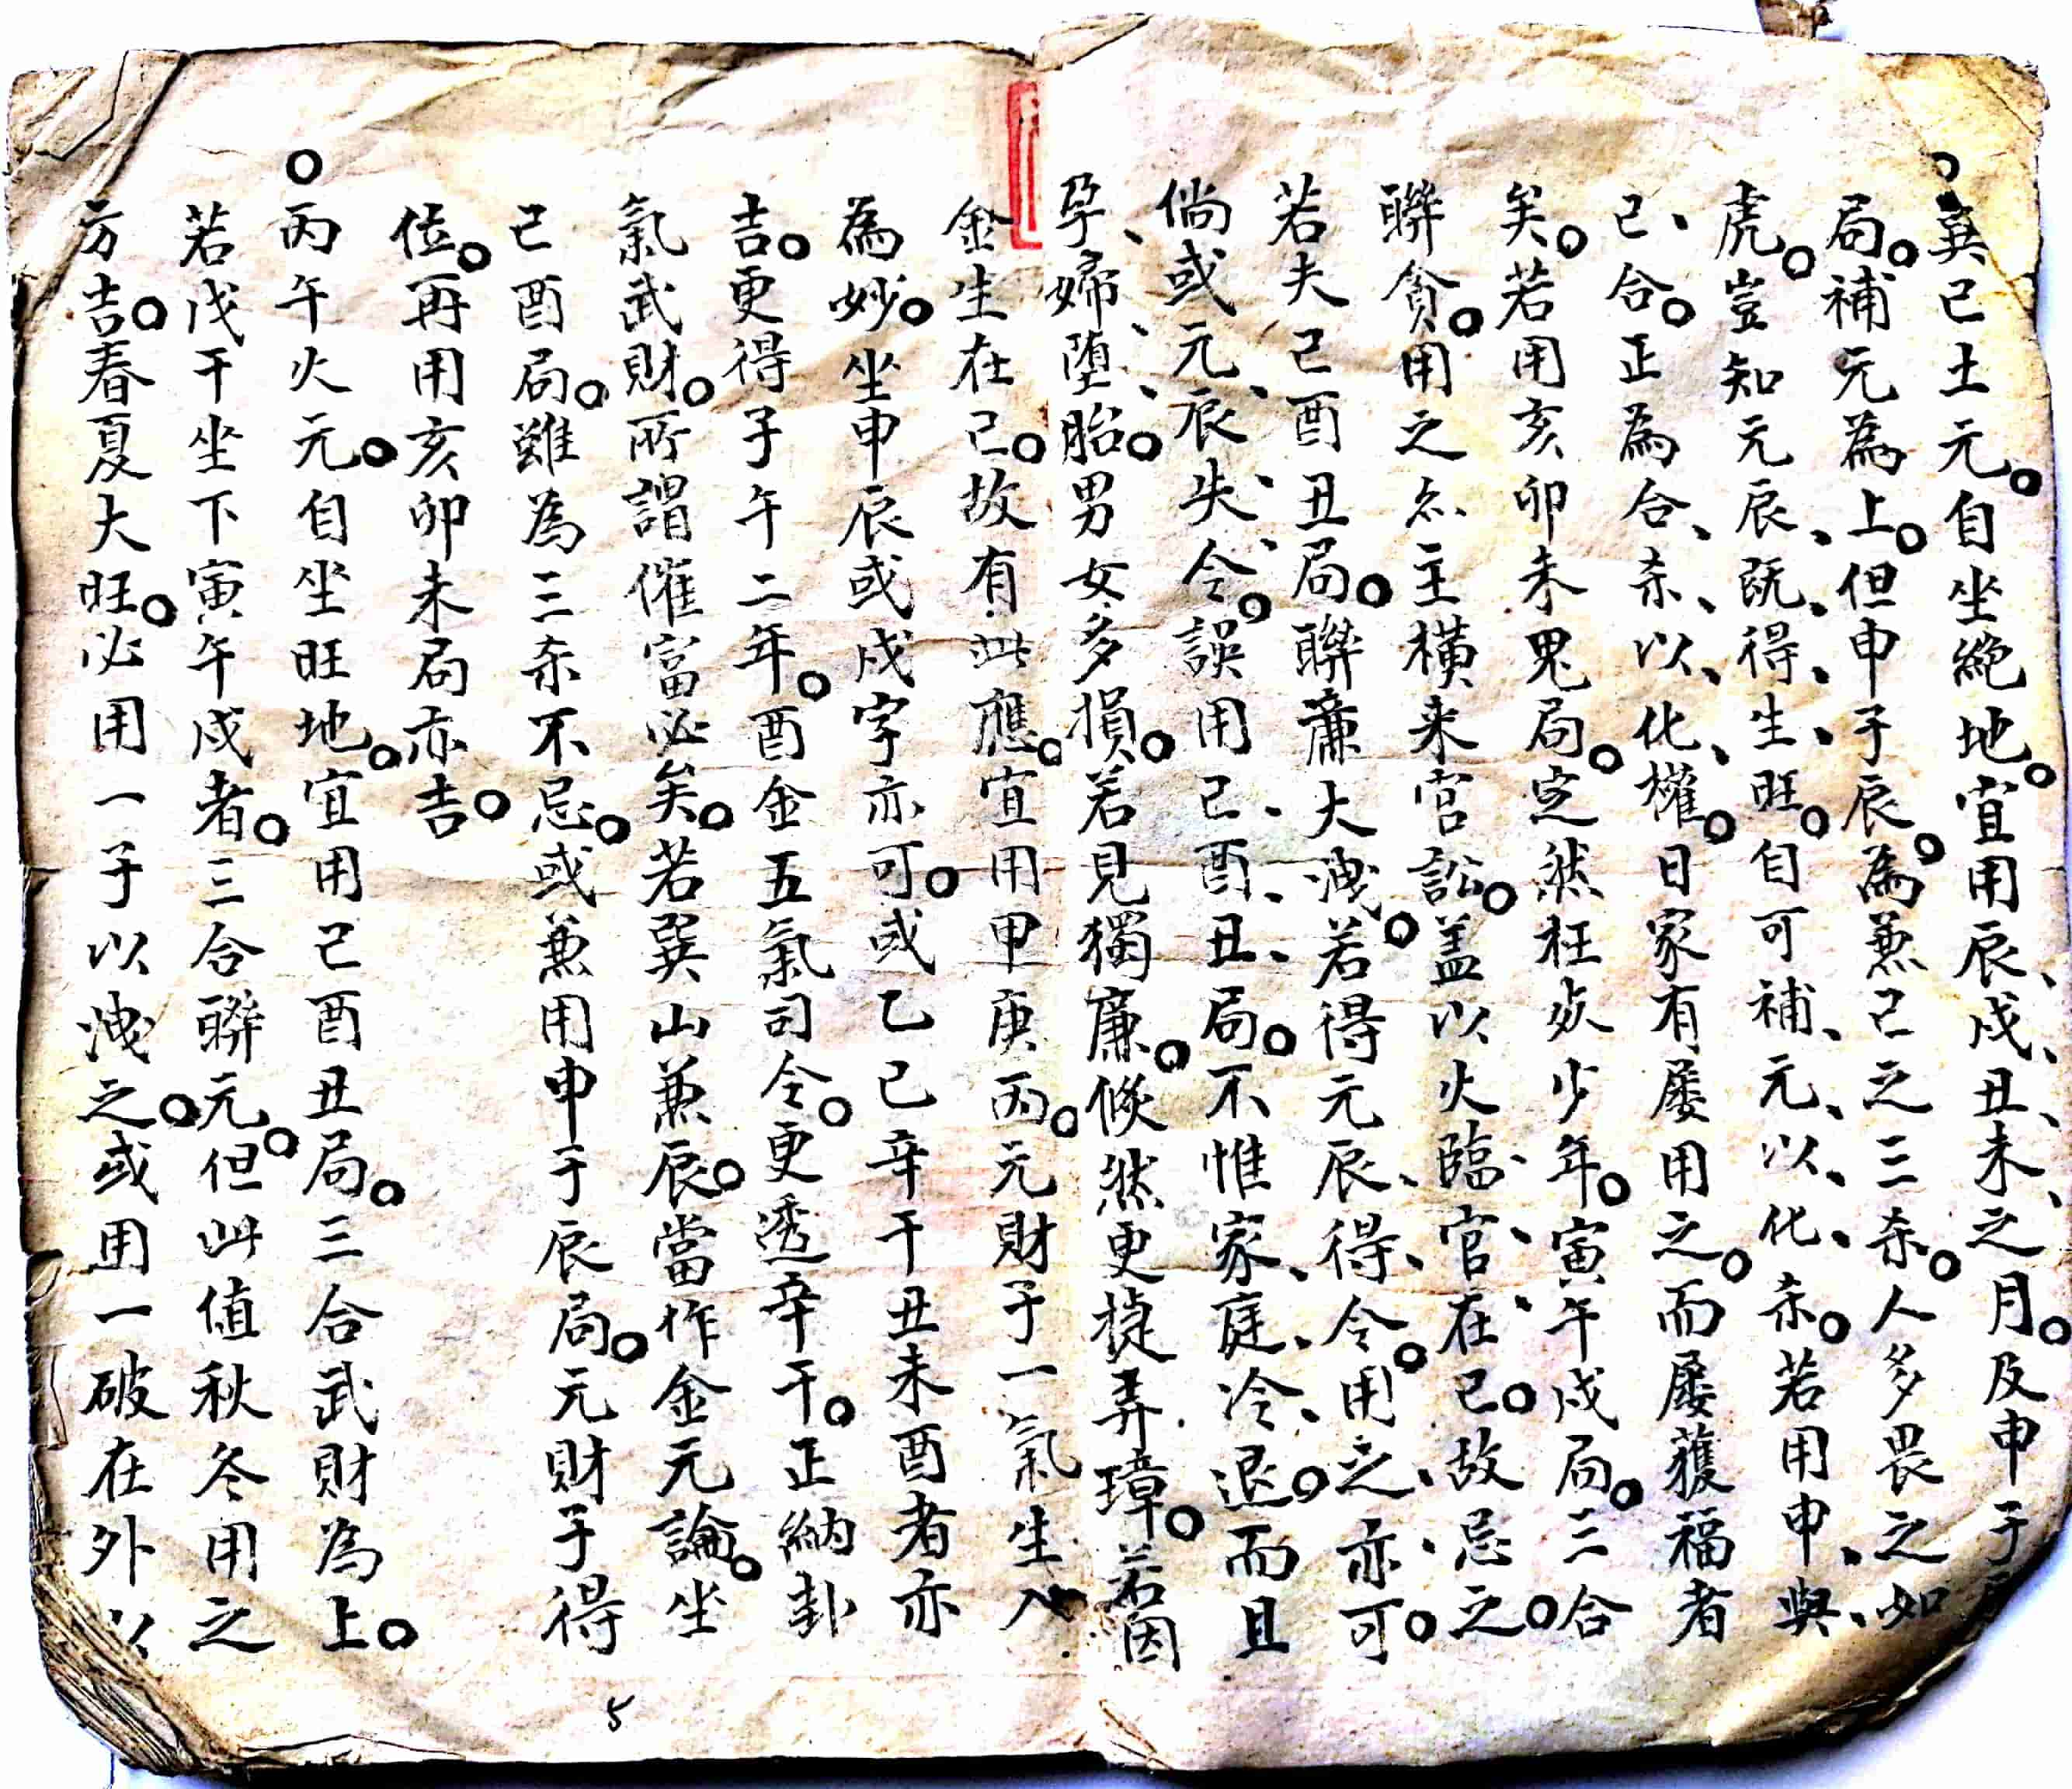 ○巽己土元。自坐絶地。宜用辰、戌、丑、未、之月。及申子辰
局。補元為上。但申子辰。為兼己之三杀。人多畏之如
虎。豈知元辰、既、得、生、旺。自可補、元、以、化、杀。若用申、與、
己、合。正為合、杀、以、化、權。日家有屡用之。而屡獲福者
矣。若用亥卯未鬼局。定然枉夾少年。寅午戌局。三合
聯貪。用之亦主横来官訟。盖以火臨、官、在、己。故忌之。
若夫己酉丑局。聯廉大洩。若得元辰、得、令。用之、亦、可。
倘或元、辰、失、令。誤用己、酉、丑、局。不惟家、庭、冷、退。而且
孕、婦、堕、胎。男女多損。若見獨廉。倐然更㨗弄璋。若因
金生在己。故有此應。宜用甲庚丙。元財子一氣生入
為妙。坐申辰或戌字亦可。或乙己辛干丑未酉者亦
吉。更得子午二年。酉金五氣司令。更透辛干。正納卦
氣武財。所謂催富必矣。若巽山兼辰。當作金元論。坐
己酉局。雖為三杀不忌。或兼用申子辰局。元財子得
位。再用亥卯未局亦吉。
○丙午火元。自坐旺地。宜用己酉丑局。三合武財為上。
若戊干坐下寅午戌者。三合聯元。但此值秋冬用之
方吉。春夏大旺。必用一子以洩之。或用一破在外以
5